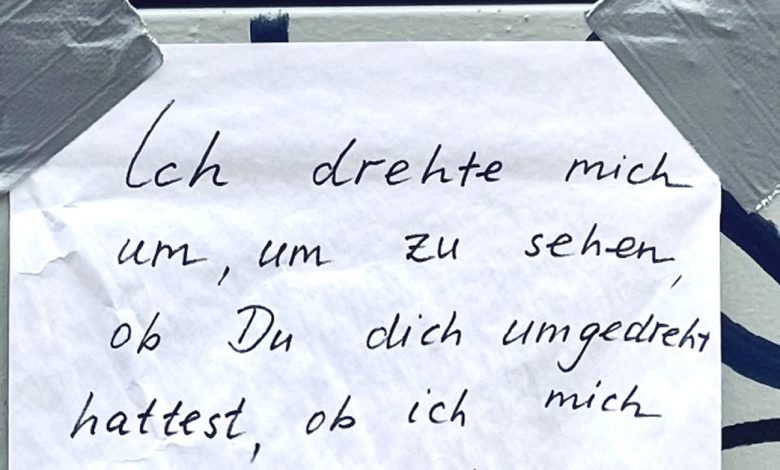 Ich drehte mich
um, um zu sehen,
ob Du dich umgedreht
hattest, ob ich mich